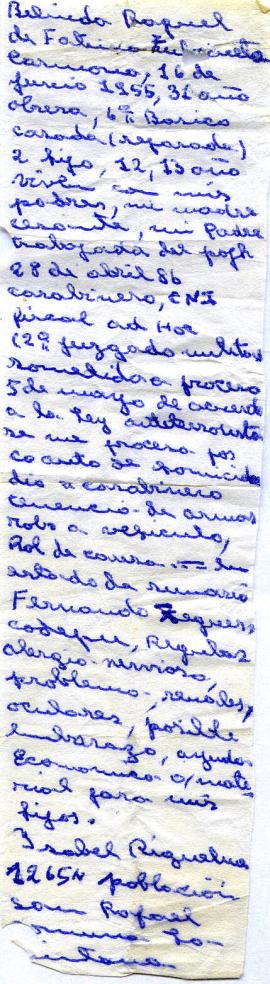 Belinda Raquel
de Fatima Zubicueta
Carmona, 16 de
Junio 1955, 31 año
obrera, 6º Basico
casada (separada)
2 hijo, 12, 13 año
viven con mis
padres, mi madre
cesante, mi Padre
trabajada del pojh
28 de abril 86
carabinero, CNI
fiscal ad Hoc
(2º juzgado militar
somelida a proceso
5 de mayo de acuerdo
a la Ley antiterrorista
se me procesa por
co auto de homicid
dio a carabinero
tenencia de armas
robo a vehiculo,
Rol de causa. — En
estado de sumario
Fernando Zegers
codepu, Regular
alergia nerviosa,
problema renales,
oculares, posible
embarazo, ayuda
Economica o/mate
rial para mis
hijos.
Isabel Riquelme
1265N población
san Rafael